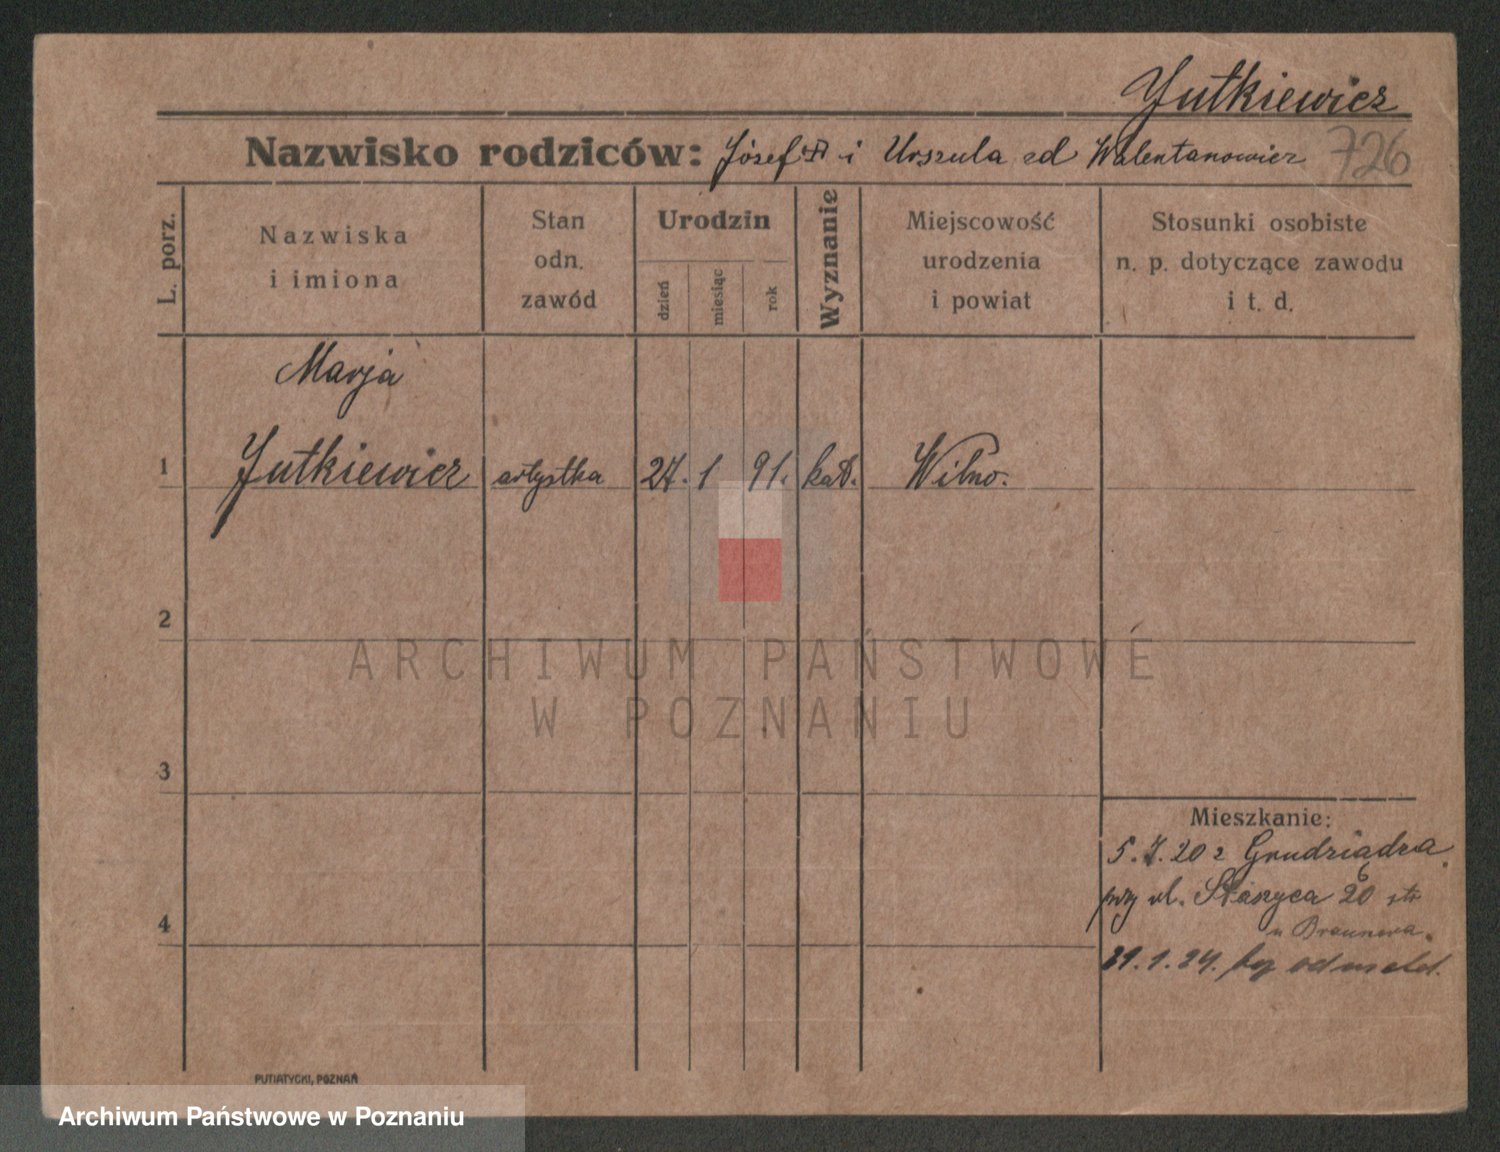 Jutkiewicz
Nazwisko rodziców: Józef i Urszula zd Walentanowicz 726
L. porz.
Nazwiska
i imiona
Stan
odn.
zawód
Urodzin
dzień
miesiąc
rok
Wyznanie
Miejscowość
urodzenia
i powiat
Stosunki osobiste
n. p. dotyczące zawodu
i t. d.
Marja
1 Jutkiewicz artystka 27. 1 91. kat. Wilno.
2
ARCHIWUM PAŃSTWOWE
W POZNANIU
3
Mieszkanie:
5.7.20 z Grudziądza
przy ul. Staszyca 20
6
u Braunera.
4
29.1.24. odmeld.
PUTIATYCKI, POZNAŃ
Archiwum Państwowe w Poznaniu